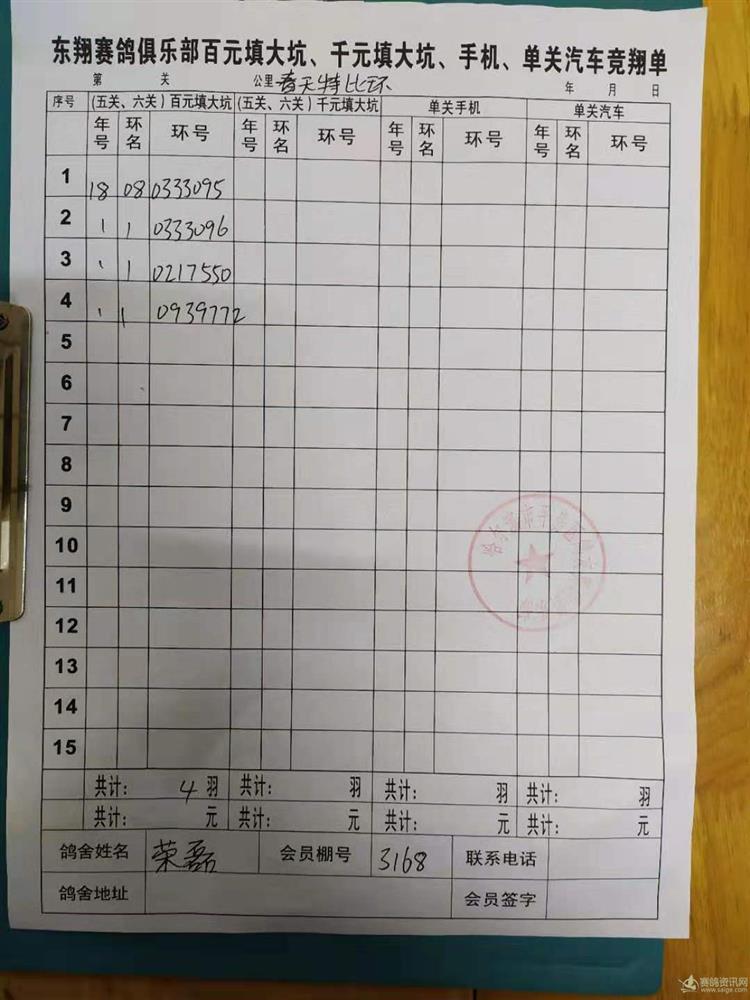 东翔赛鸽俱乐部百元填大坑、千元填大坑、手机、单关汽车竞翔单
第 关 公里 春天特比环 年 月 日
序号 (五关、六关)百元填大坑 (五关、六关)千元填大坑 单关手机 单关汽车
年号 环名 环号 年号 环名 环号 年号 环名 环号 年号 环名 环号
1 18 08 0333095
2 \ 1 0333096
3 \ 1 0217550
4 \ 1 0939772
5
6
7
8
9
10
11
12
13
14
15
共计: 4 羽 共计: 羽 共计: 羽 共计: 羽
共计: 元 共计: 元 共计: 元 共计: 元
鸽舍姓名 荣磊 会员棚号 3168 联系电话
鸽舍地址 会员签字
赛鸽资讯网
www.saige.com